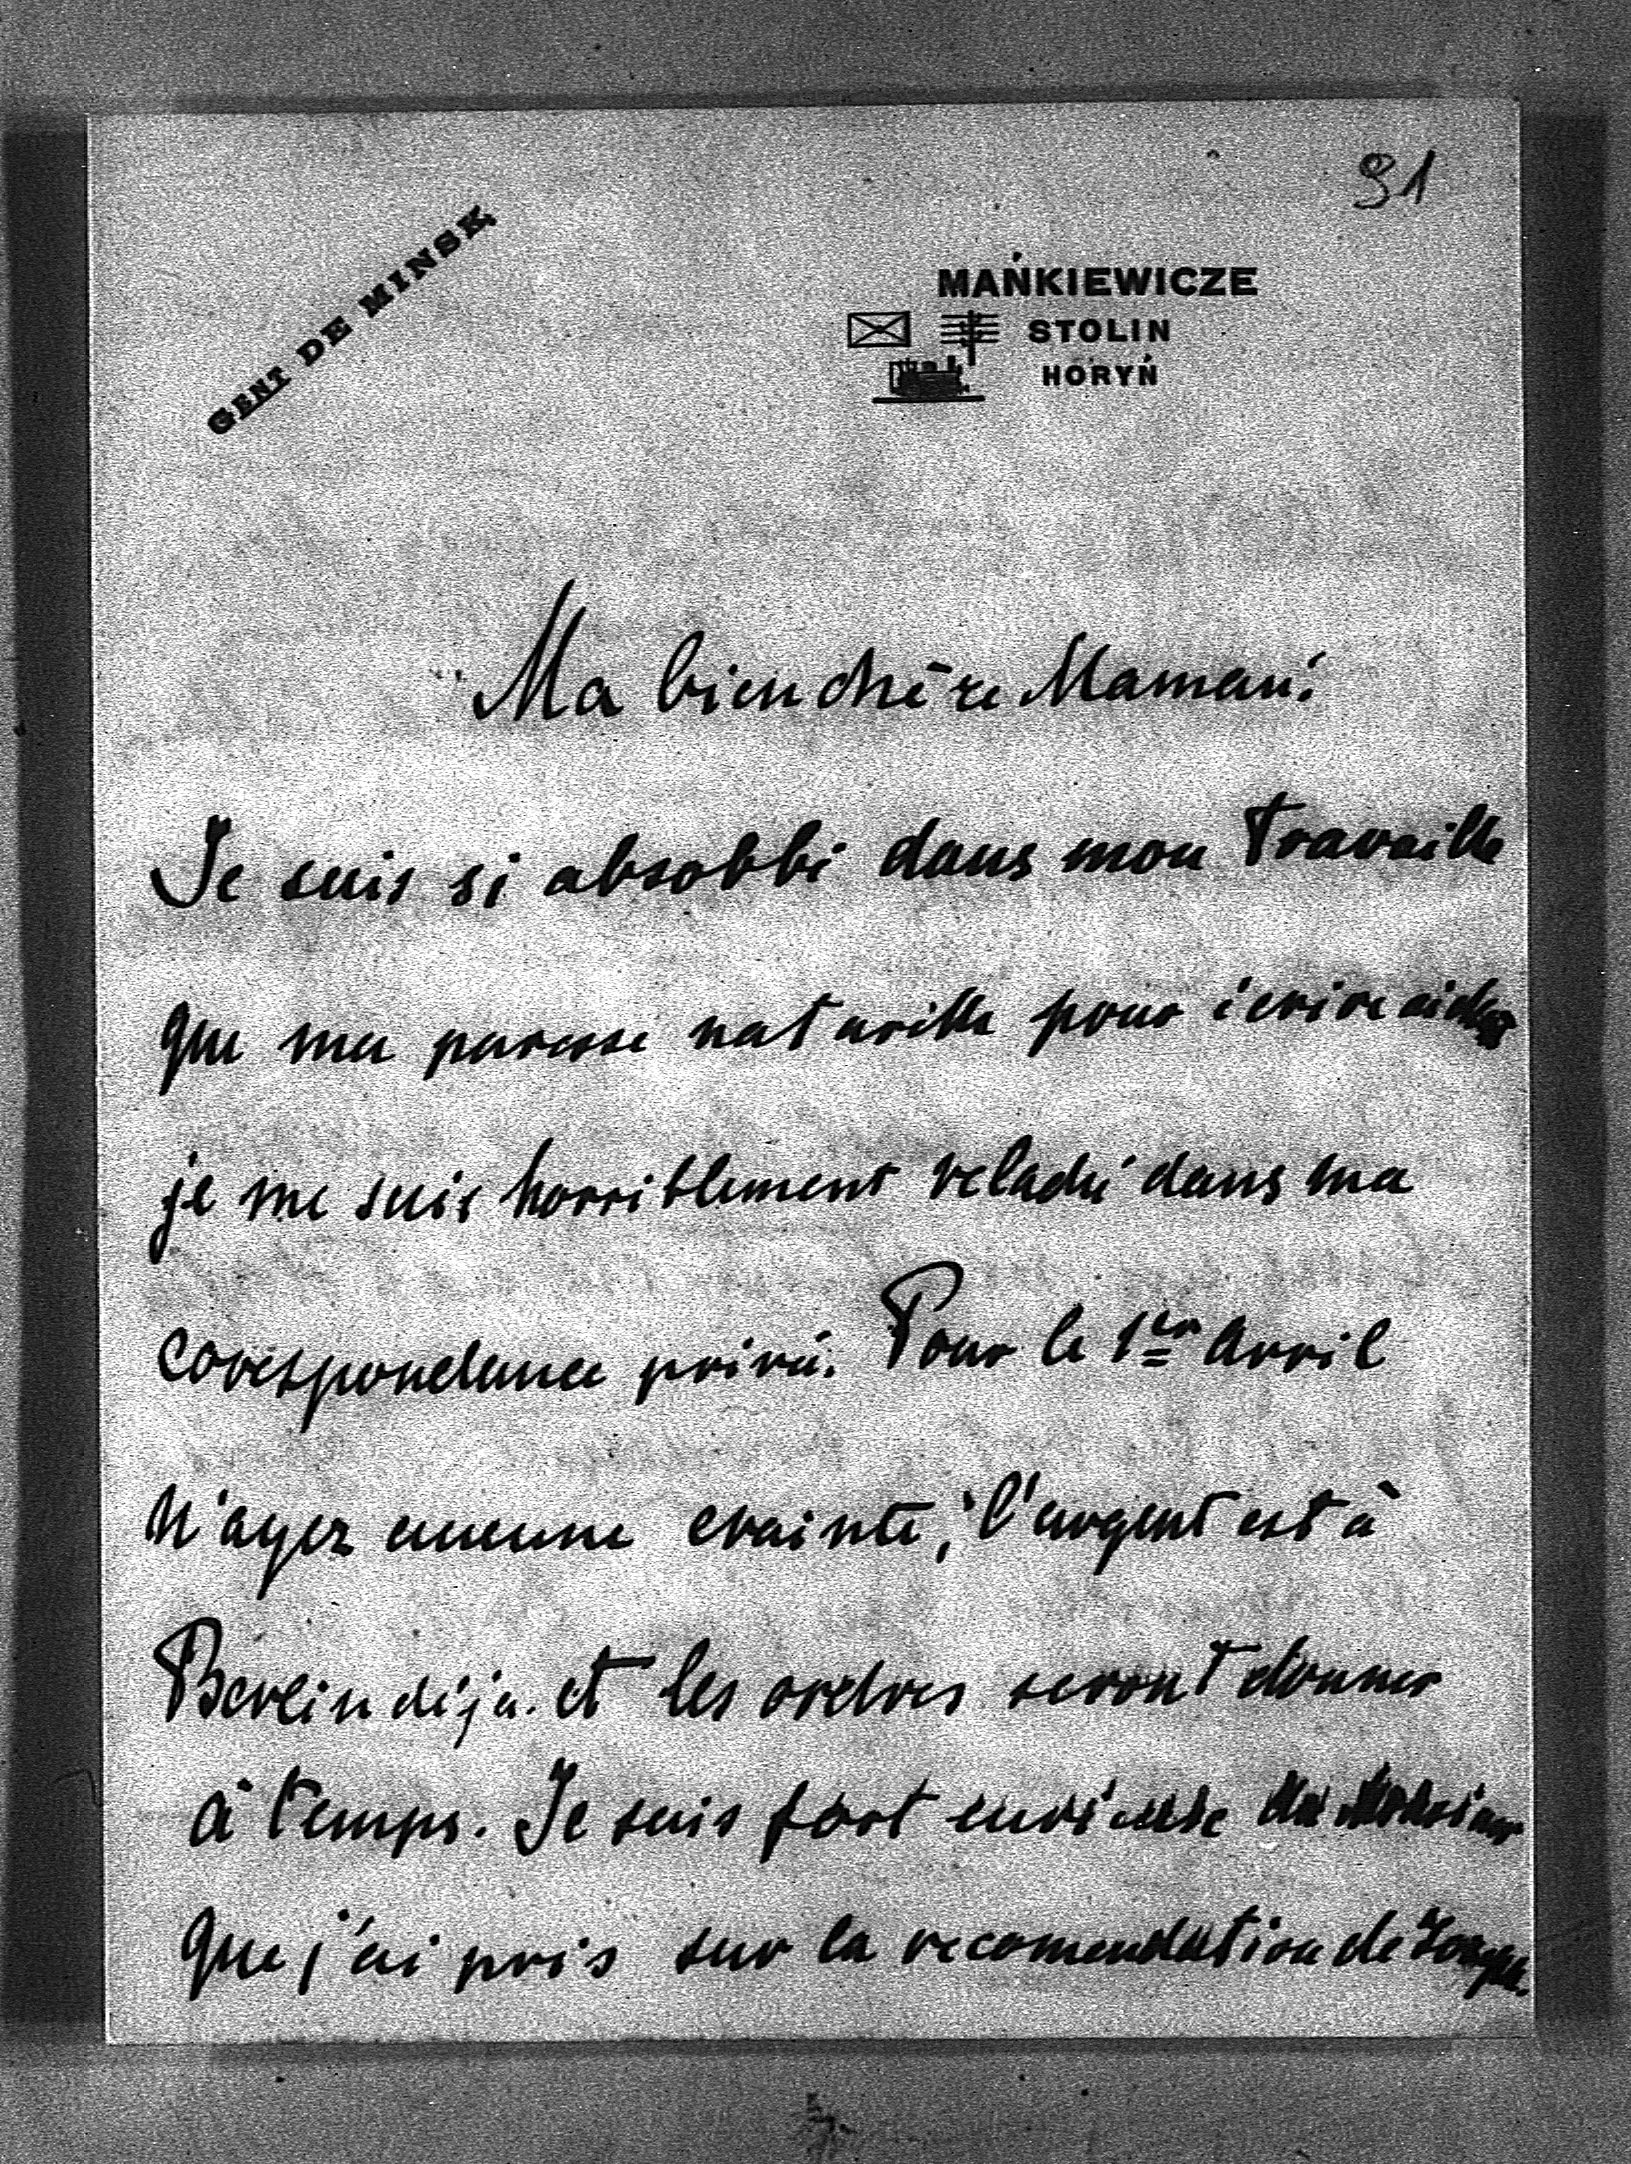 91
GENT DE MINSK,
MAŃKIEWICZE
STOLIN
HORYŃ
Ma bien chère Maman!
Je suis si absobbé dans mon travaille
que ma paresse naturelle pour écrire
je me suis horriblement relaché dans ma
corespondance privé. Pour le 1er Avril
N'ayez aucune crainte, l'argent est à
Berlin déja. et les ordres seront donner
à temps. Je suis fort
que j'ai pris sur la recomendation de Joseph.